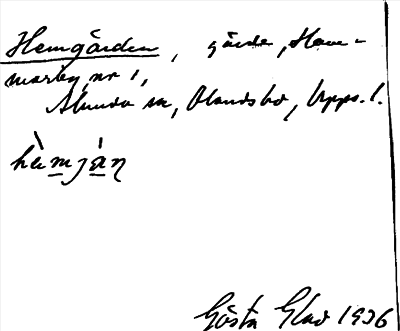 Hemgården, gärde, Ham-
marby nr 1,
Alunda sn, Olands hd, Upps. l.
hèmjàɳ
Gösta Glad 1936